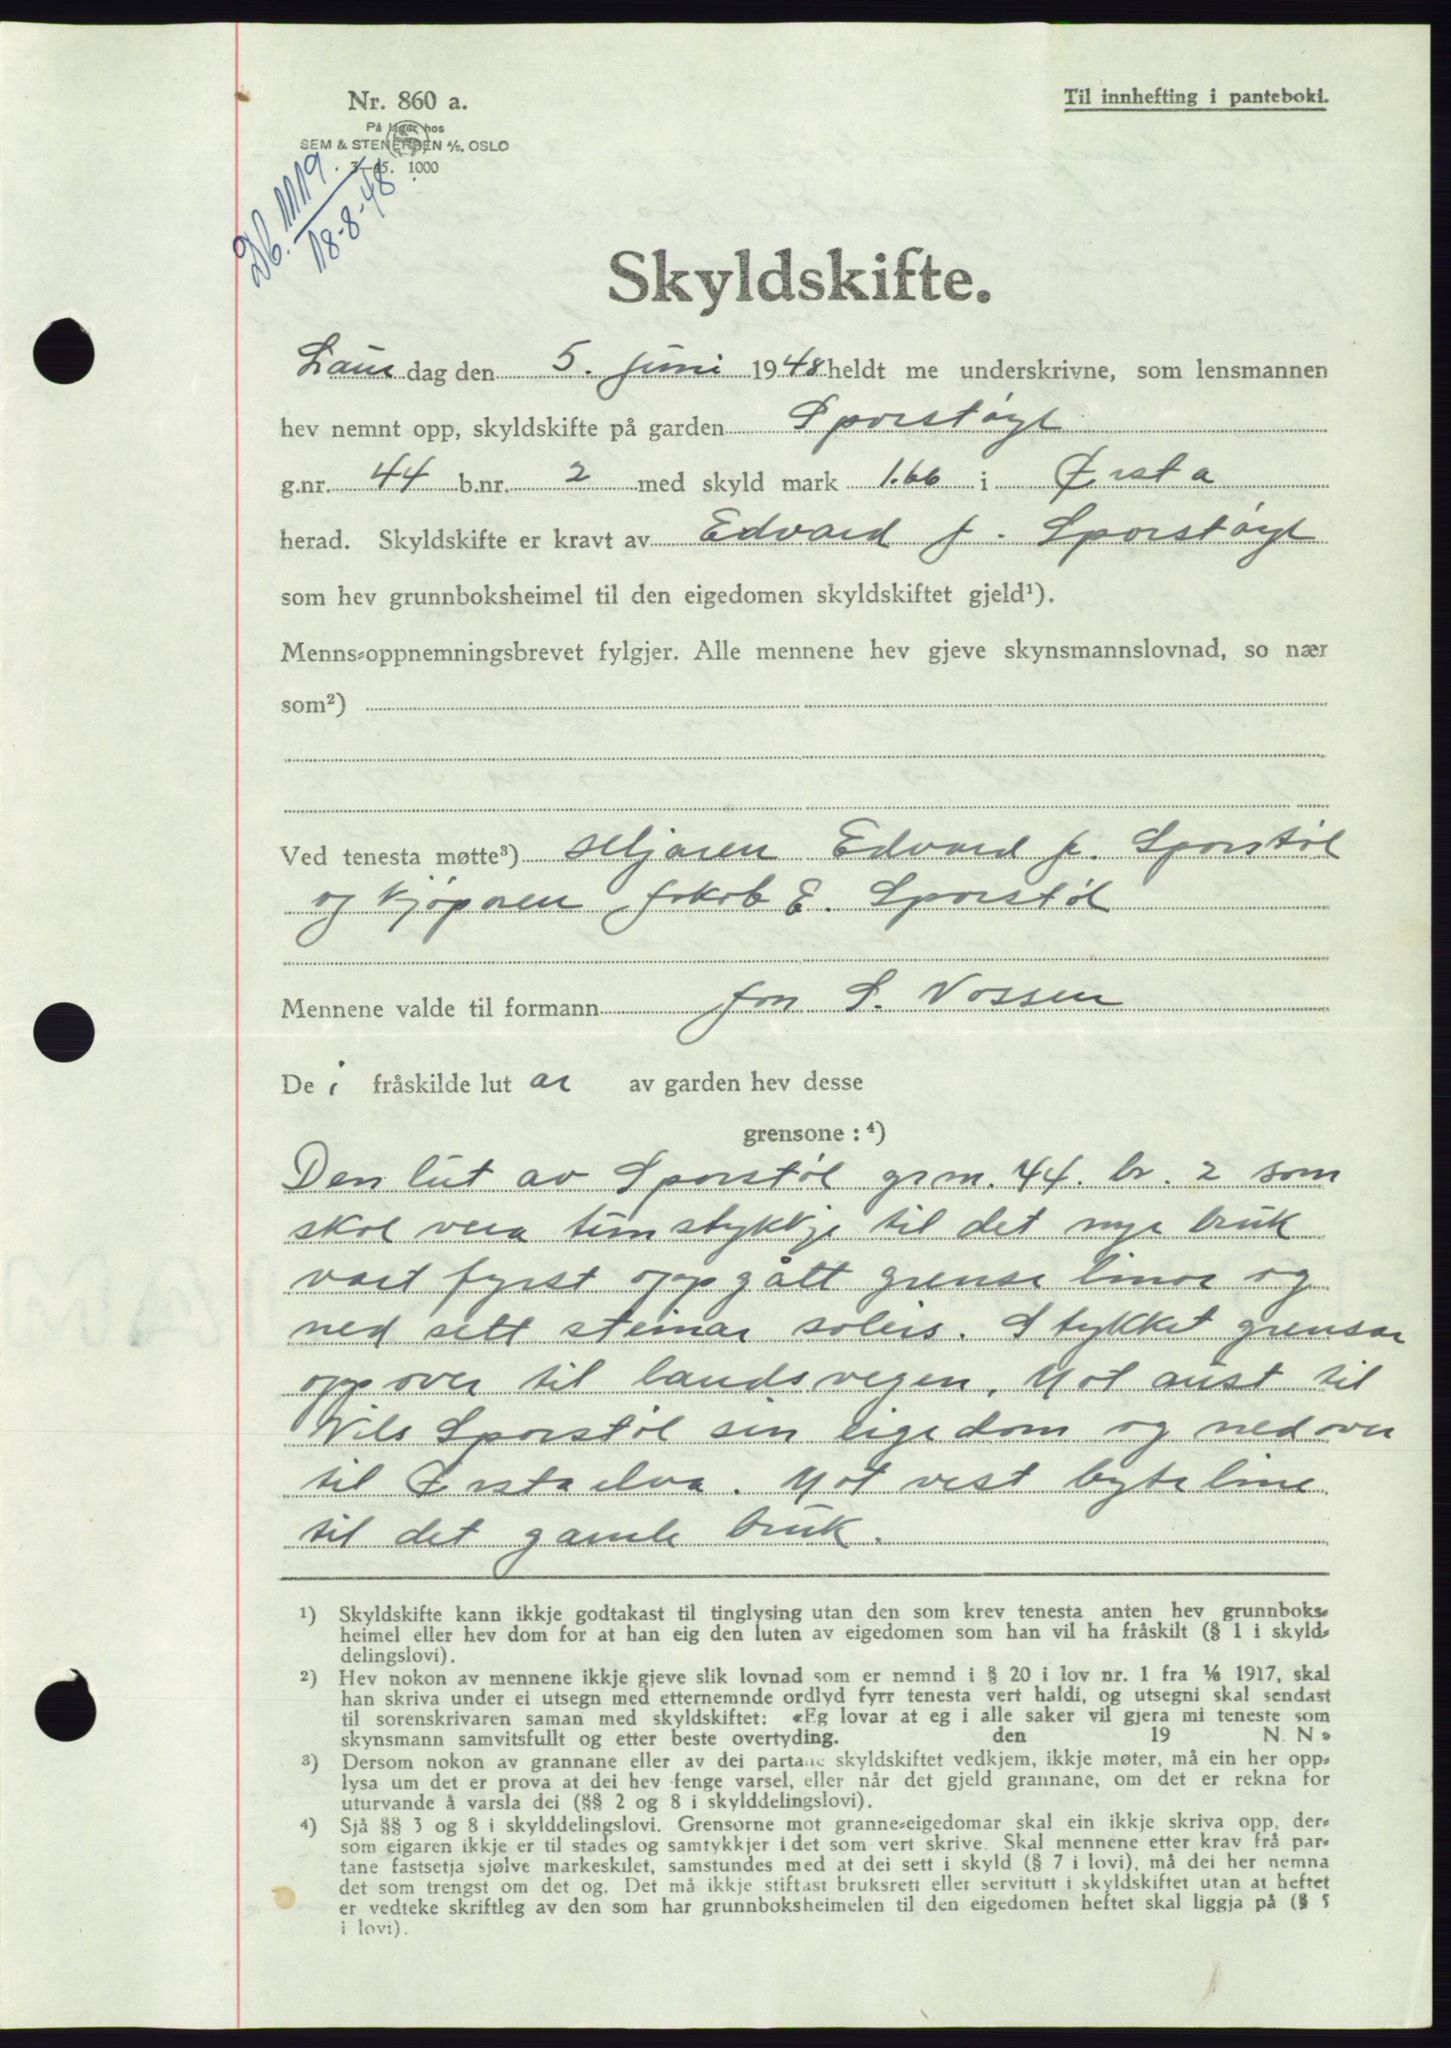 Nr. 860 a.
Til innhefting i panteboki.
På lager hos
SEM & STENERSEN A/S, OSLO
3-45. 1000
Db. 1119.
18-8-48
Skyldskifte.
Laur dag den 5. juni 1948 heldt me underskrivne, som lensmannen
hev nemnt opp, skyldskifte på garden Sporstøyl
g.nr. 44 b.nr. 2 med skyld mark 1.66 i Ørsta
herad. Skyldskifte er kravt av Edvard J. Sporstøyl
som hev grunnboksheimel til den eigedomen skyldskiftet gjeld¹).
Menns-oppnemningsbrevet fylgjer. Alle mennene hev gjeve skynsmannslovnad, so nær
som²)
Ved tenesta møtte³) seljaren Edvard J. Sporstøl
og kjøparen Jakob E. Sporstøl
Mennene valde til formann Jon S. Vossen
De i fråskilde lut ar av garden hev desse
grensone : ⁴)
Den lut av Sporstøl grm. 44. br. 2 som
skal vera tunstykkje til det nye bruk
vart fyrst oppgått grense linor og
ned sett steinar soleis. Stykket grensar
oppover til landsvegen. Mot aust til
Nils Sporstøl sin eigedom og nedover
til Ørstaelva. Mot vest byteline
til det gamle bruk.
¹) Skyldskifte kann ikkje godtakast til tinglysing utan den som krev tenesta anten hev grunnboks-
heimel eller hev dom for at han eig den luten av eigedomen som han vil ha fråskilt (§ 1 i skyld-
delingslovi).
²) Hev nokon av mennene ikkje gjeve slik lovnad som er nemnd i § 20 i lov nr. 1 fra 1/6 1917, skal
han skriva under ei utsegn med etternemnde ordlyd fyrr tenesta vert haldi, og utsegni skal sendast
til sorenskrivaren saman med skyldskiftet: «Eg lovar at eg i alle saker vil gjera mi teneste som
skynsmann samvitsfullt og etter beste overtyding. den 19 N. N.»
³) Dersom nokon av grannane eller av dei partane skyldskiftet vedkjem, ikkje møter, må ein her opp-
lysa um det er prova at dei hev fenge varsel, eller når det gjeld grannane, om det er rekna for
uturvande å varsla dei (§§ 2 og 8 i skylddelingslovi).
⁴) Sjå §§ 3 og 8 i skylddelingslovi. Grensorne mot granne-eigedomar skal ein ikkje skriva opp, der-
som eigaren ikkje er til stades og samtykkjer i det som vert skrive. Skal mennene etter krav frå par-
tane fastsetja sjølve markeskilet, samstundes med at dei sett i skyld (§ 7 i lovi), må dei her nemna
det som trengst om det og. Det må ikkje stiftast bruksrett eller servitutt i skyldskiftet utan at heftet
er vedteke skriftleg av den som har grunnboksheimelen til den eigedomen heftet skal liggja på (§ 5
i lovi).